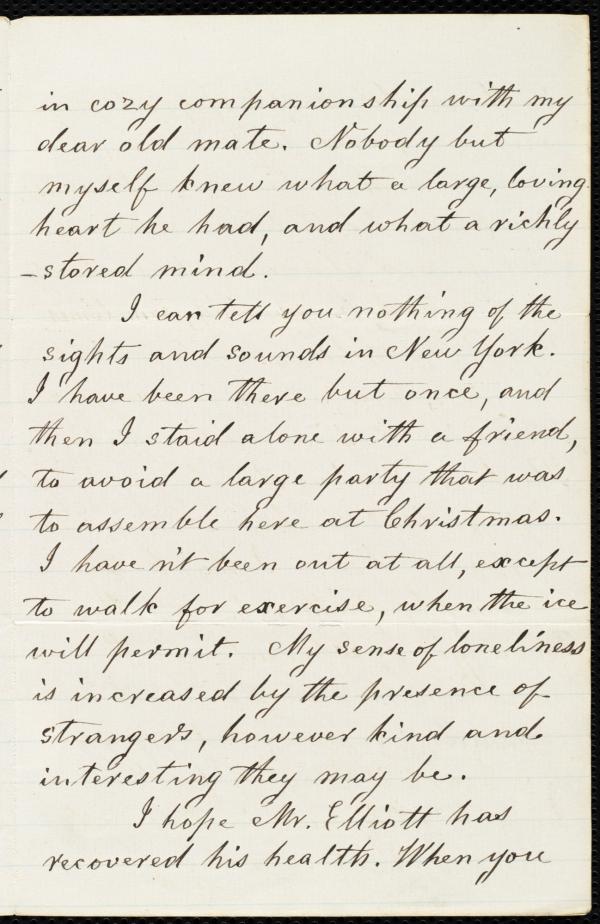 in cozy companionship with my
dear old mate. Nobody but
myself knew what a large, loving
heart he had, and what a richly
-stored mind.
I can tell you nothing of the
sights and sounds in New York.
I have been there but once, and
then I staid alone with a friend,
to avoid a large party that was
to assemble here at Christmas.
I have n't been out at all, except
to walk for exercise, when the ice
will permit. My sense of loneliness
is increased by the presence of
strangers, however kind and
interesting they may be.
I hope Mr. Elliott has
recovered his health. When you